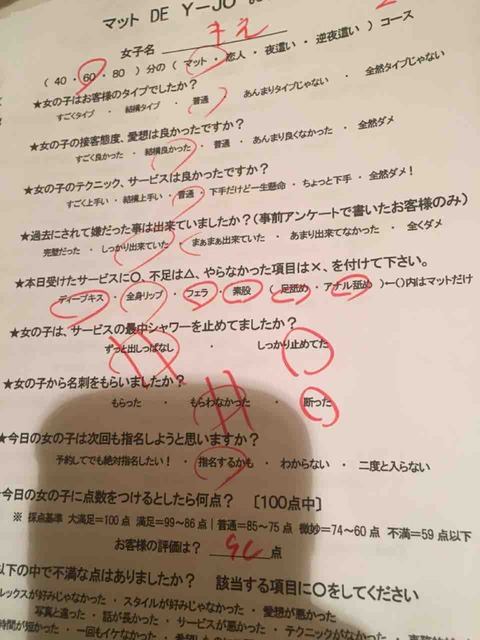 マット DE Y-JO
女子名 きえ
( 40 ・ 60 ・ 80 ) 分の ( マット ・ 恋人 ・ 夜這い ・ 逆夜這い ) コース
★女の子はお客様のタイプでしたか?
すごくタイプ ・ 結構タイプ ・ 普通 ・ あんまりタイプじゃない ・ 全然タイプじゃない
★女の子の接客態度、愛想は良かったですか?
すごく良かった ・ 結構良かった ・ 普通 ・ あんまり良くなかった ・ 全然ダメ
★女の子のテクニック、サービスは良かったですか?
すごく上手い ・ 結構上手い ・ 普通 ・ 下手だけど一生懸命 ・ ちょっと下手 ・ 全然ダメ!
★過去にされて嫌だった事は出来ていましたか?(事前アンケートで書いたお客様のみ)
完璧だった ・ しっかり出来ていた ・ まぁまぁ出来ていた ・ あまり出来てなかった ・ 全くダメ
★本日受けたサービスに〇、不足は△、やらなかった項目は×、を付けて下さい。
ディープキス ・ 全身リップ ・ フェラ ・ 素股 ( 足舐め ・ アナル舐め )←()内はマットだけ
★女の子は、サービスの最中シャワーを止めてましたか?
ずっと出しっぱなし ・ しっかり止めてた
★女の子から名刺をもらいましたか?
もらった ・ もらわなかった ・ 断った
★今日の女の子は次回も指名しようと思いますか?
予約してでも絶対指名したい! ・ 指名するかも ・ わからない ・ 二度と入らない
今日の女の子に点数をつけるとしたら何点? [100点中]
※ 採点基準 大満足=100点 満足=99~86点|普通=85~75点 微妙=74~60点 不満=59点以下
お客様の評価は? 点
以下の中で不満な点はありましたか? 該当する項目に〇をしてください
ルックスが好みじゃなかった ・ スタイルが好みじゃなかった ・ 愛想が悪かった
写真と違った ・ 話が長かった ・ サービスが悪かった ・ テクニックがなかった
時間が短かった ・ 一回もイケなかった